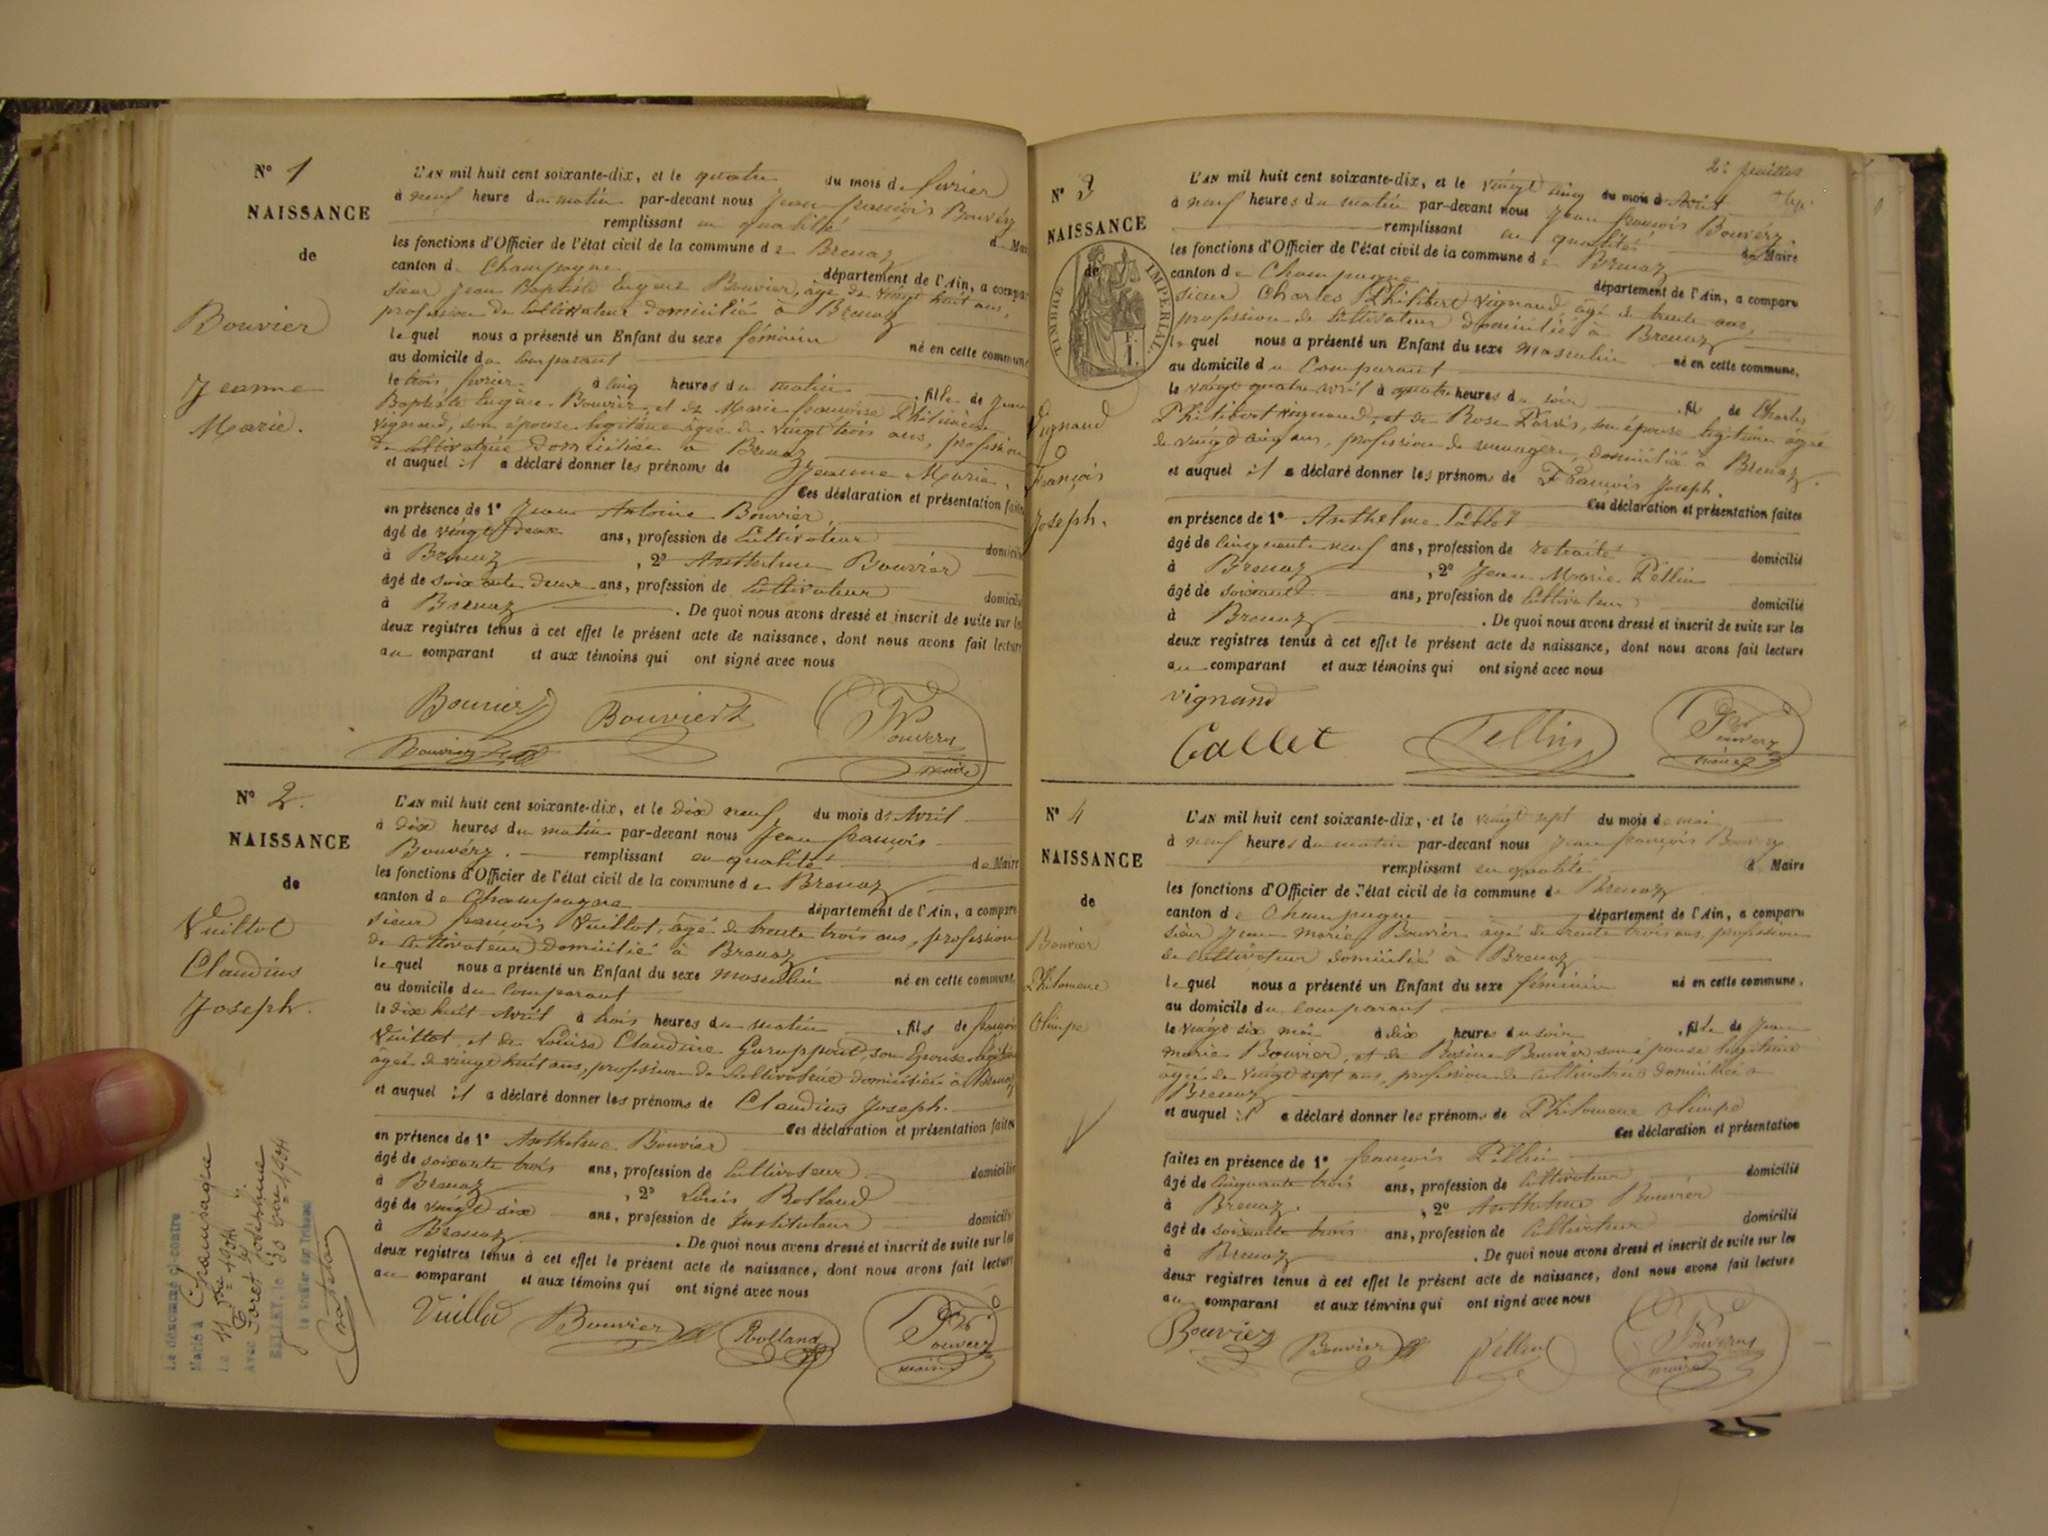 N° 1
NAISSANCE
de
Bouvier
Jeanne
Marie.
L'AN mil huit cent soixante-dix, et le quatre du mois de février
à neuf heure du matin par-devant nous Jean françois Bouvéry
remplissant en qualité de Mai
les fonctions d'Officier de l'état civil de la commune de Brenaz
canton de Champagne département de l'Ain, a compa
sieur Jean Baptiste Eugène Bouvier, âgé de vingt huit ans,
profession de Cultivateur domicilié à Brenaz
lequel nous a présenté un Enfant du sexe féminin né en cette commune
au domicile du Comparant
le trois février à cinq heures du matin, fille de Jean
Baptiste Eugène Bouvier et de Marie françoise Philimène
Vignaud, son épouse légitime âgée de vingt trois ans, profession
de cultivatrice domiciliée à Brenaz
et auquel il a déclaré donner les prénoms de Jeanne Marie.
Ces déclaration et présentation faites
en présence de 1° Jean Antoine Bouvier
âgé de vingt deux ans, profession de Cultivateur domicilié
à Brenaz, 2° Anthelme Bouvier
âgé de soixante deux ans, profession de Cultivateur domicilié
à Brenaz. De quoi nous avons dressé et inscrit de suite sur les
deux registres tenus à cet effet le présent acte de naissance, dont nous avons fait lecture
au comparant et aux témoins qui ont signé avec nous
Bouvier Bouvier
Bouvery
maire
N° 2.
NAISSANCE
de
Vuillot
Claudius
Joseph.
L'AN mil huit cent soixante-dix, et le dix neuf du mois d'Avril
à dix heures du matin par-devant nous Jean françois
Bouvéry. remplissant en qualité de Maire
les fonctions d'Officier de l'état civil de la commune de Brenaz
canton de Champagne département de l'Ain, a comparu
sieur françois Vuillot, âgé de trente trois ans, profession
de Cultivateur domicilié à Brenaz
lequel nous a présenté un Enfant du sexe masculin né en cette commune,
au domicile du Comparant
le dix huit Avril à trois heures du matin, fils de françois
Vuillot et de Louise Claudine son Epouse légitime
âgée de vingt huit ans, profession de Cultivatrice domiciliée à Brenaz
et auquel il a déclaré donner les prénoms de Claudius Joseph.
Ces déclaration et présentation faites
en présence de 1° Anthelme Bouvier
âgé de soixante trois ans, profession de Cultivateur domicilié
à Brenaz, 2° Louis Rolland
âgé de vingt six ans, profession de Instituteur domicilié
à Brenaz. De quoi nous avons dressé et inscrit de suite sur les
deux registres tenus à cet effet le présent acte de naissance, dont nous avons fait lecture
au comparant et aux témoins qui ont signé avec nous
Vuillot Bouvier Rolland
Bouvery
maire
Le dénommé ci contre
Marié à
Le
Avec
le Greffier du Tribunal
2e feuillet
N° 3
NAISSANCE
de
TIMBRE IMPERIAL
Vignaud
François
Joseph.
L'AN mil huit cent soixante-dix, et le vingt cinq du mois d'Avril
à neuf heures du matin par-devant nous Jean françois Bouvéry.
remplissant en qualité de Maire
les fonctions d'Officier de l'état civil de la commune de Brenaz
canton de Champagne département de l'Ain, a comparu
sieur Charles Philibert Vignaud, âgé de trente ans,
profession de Cultivateur domicilié à Brenaz
lequel nous a présenté un Enfant du sexe masculin né en cette commune,
au domicile du Comparant
le vingt quatre avril à quatre heures du soir, fils de Charles
Philibert Vignaud, et de Rose son épouse légitime âgée
de vingt cinq ans, profession de ménagère, domiciliée à Brenaz.
et auquel il a déclaré donner les prénoms de François Joseph.
Ces déclaration et présentation faites
en présence de 1° Anthelme
âgé de Cinquante neuf ans, profession de retraité domicilié
à Brenaz, 2° Jean Marie Pellin
âgé de soixante ans, profession de Cultivateur domicilié
à Brenaz. De quoi nous avons dressé et inscrit de suite sur les
deux registres tenus à cet effet le présent acte de naissance, dont nous avons fait lecture
au comparant et aux témoins qui ont signé avec nous
vignaud
Callet Pellin
Bouvery
maire
N° 4
NAISSANCE
de
Bouvier
Philomene
Olimpe
L'AN mil huit cent soixante-dix, et le vingt sept du mois de mai
à neuf heures du matin par-devant nous Jean françois Bouvéry
remplissant en qualité de Maire
les fonctions d'Officier de l'état civil de la commune de Brenaz
canton de Champagne département de l'Ain, a comparu
sieur Jean Marie Bouvier âgé de trente trois ans, profession
de cultivateur domicilié à Brenaz
lequel nous a présenté un Enfant du sexe féminin né en cette commune,
au domicile du comparant
le vingt six mai à dix heures du soir, fille de Jean
marie Bouvier, et de Rosine Bouvier son épouse légitime
âgée de vingt sept ans, profession de cultivatrice domiciliée à
Brenaz
et auquel il a déclaré donner les prénoms de Philomene Olimpe
Ces déclaration et présentation
faites en présence de 1° françois Pellin
âgé de cinquante trois ans, profession de Cultivateur domicilié
à Brenaz, 2° Anthelme Bouvier
âgé de soixante trois ans, profession de Cultivateur domicilié
à Brenaz. De quoi nous avons dressé et inscrit de suite sur les
deux registres tenus à cet effet le présent acte de naissance, dont nous avons fait lecture
au comparant et aux témoins qui ont signé avec nous
Bouvier Bouvier Pellin
Bouvery
maire